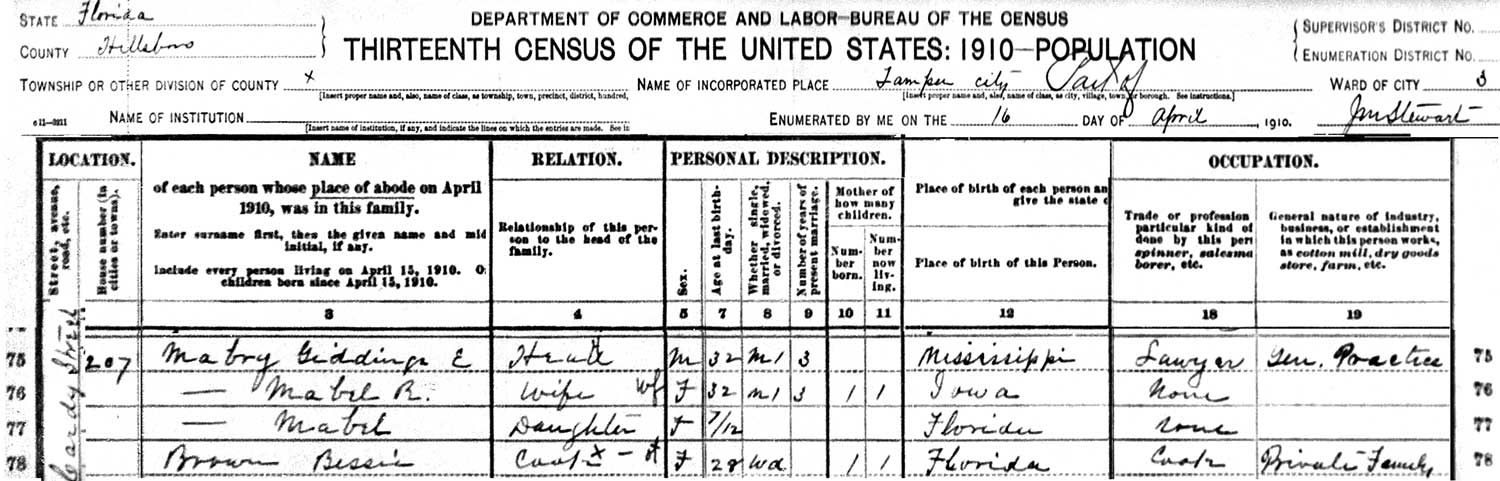 STATE Florida
COUNTY Hillsboro
DEPARTMENT OF COMMERCE AND LABOR—BUREAU OF THE CENSUS
THIRTEENTH CENSUS OF THE UNITED STATES: 1910—POPULATION
SUPERVISOR'S DISTRICT NO.
ENUMERATION DISTRICT NO.
TOWNSHIP OR OTHER DIVISION OF COUNTY X
[Insert proper name and, also, name of class, as township, town, precinct, district, hundred,
NAME OF INCORPORATED PLACE Tampa city Part of
[Insert proper name and, also, name of class, as city, village, town, or borough. See instructions.]
WARD OF CITY 3
6 11—3211
NAME OF INSTITUTION
[Insert name of institution, if any, and indicate the lines on which the entries are made. See in
ENUMERATED BY ME ON THE 16 DAY OF April, 1910. JM Stewart
LOCATION.
Street, avenue, road, etc.
House number (in cities or towns).
NAME
of each person whose place of abode on April
1910, was in this family.
Enter surname first, then the given name and mid
initial, if any.
Include every person living on April 15, 1910. O
children born since April 15, 1910.
RELATION.
Relationship of this per-
son to the head of the
family.
PERSONAL DESCRIPTION.
Sex.
Age at last birth-
day.
Whether single,
married, widowed,
or divorced.
Number of years of
present marriage.
Mother of
how many
children.
Num-
ber
born.
Num-
ber
now
liv-
ing.
Place of birth of each person an
give the state o
Place of birth of this Person.
OCCUPATION.
Trade or profession
particular kind of
done by this per
spinner, salesma
borer, etc.
General nature of industry,
business, or establishment
in which this person works,
as cotton mill, dry goods
store, farm, etc.
3 4 5 7 8 9 10 11 12 18 19
75 207 Mabry Giddings E Head M 32 M1 3 Mississippi Lawyer Gen. Practice 75
76 — Mabel R. Wife Wf F 32 M1 3 1 1 Iowa None 76
77 — Mabel Daughter F 7/12 Florida None 77
78 Brown Bessie Cook X F 28 Wd 1 1 Florida Cook Private Family 78